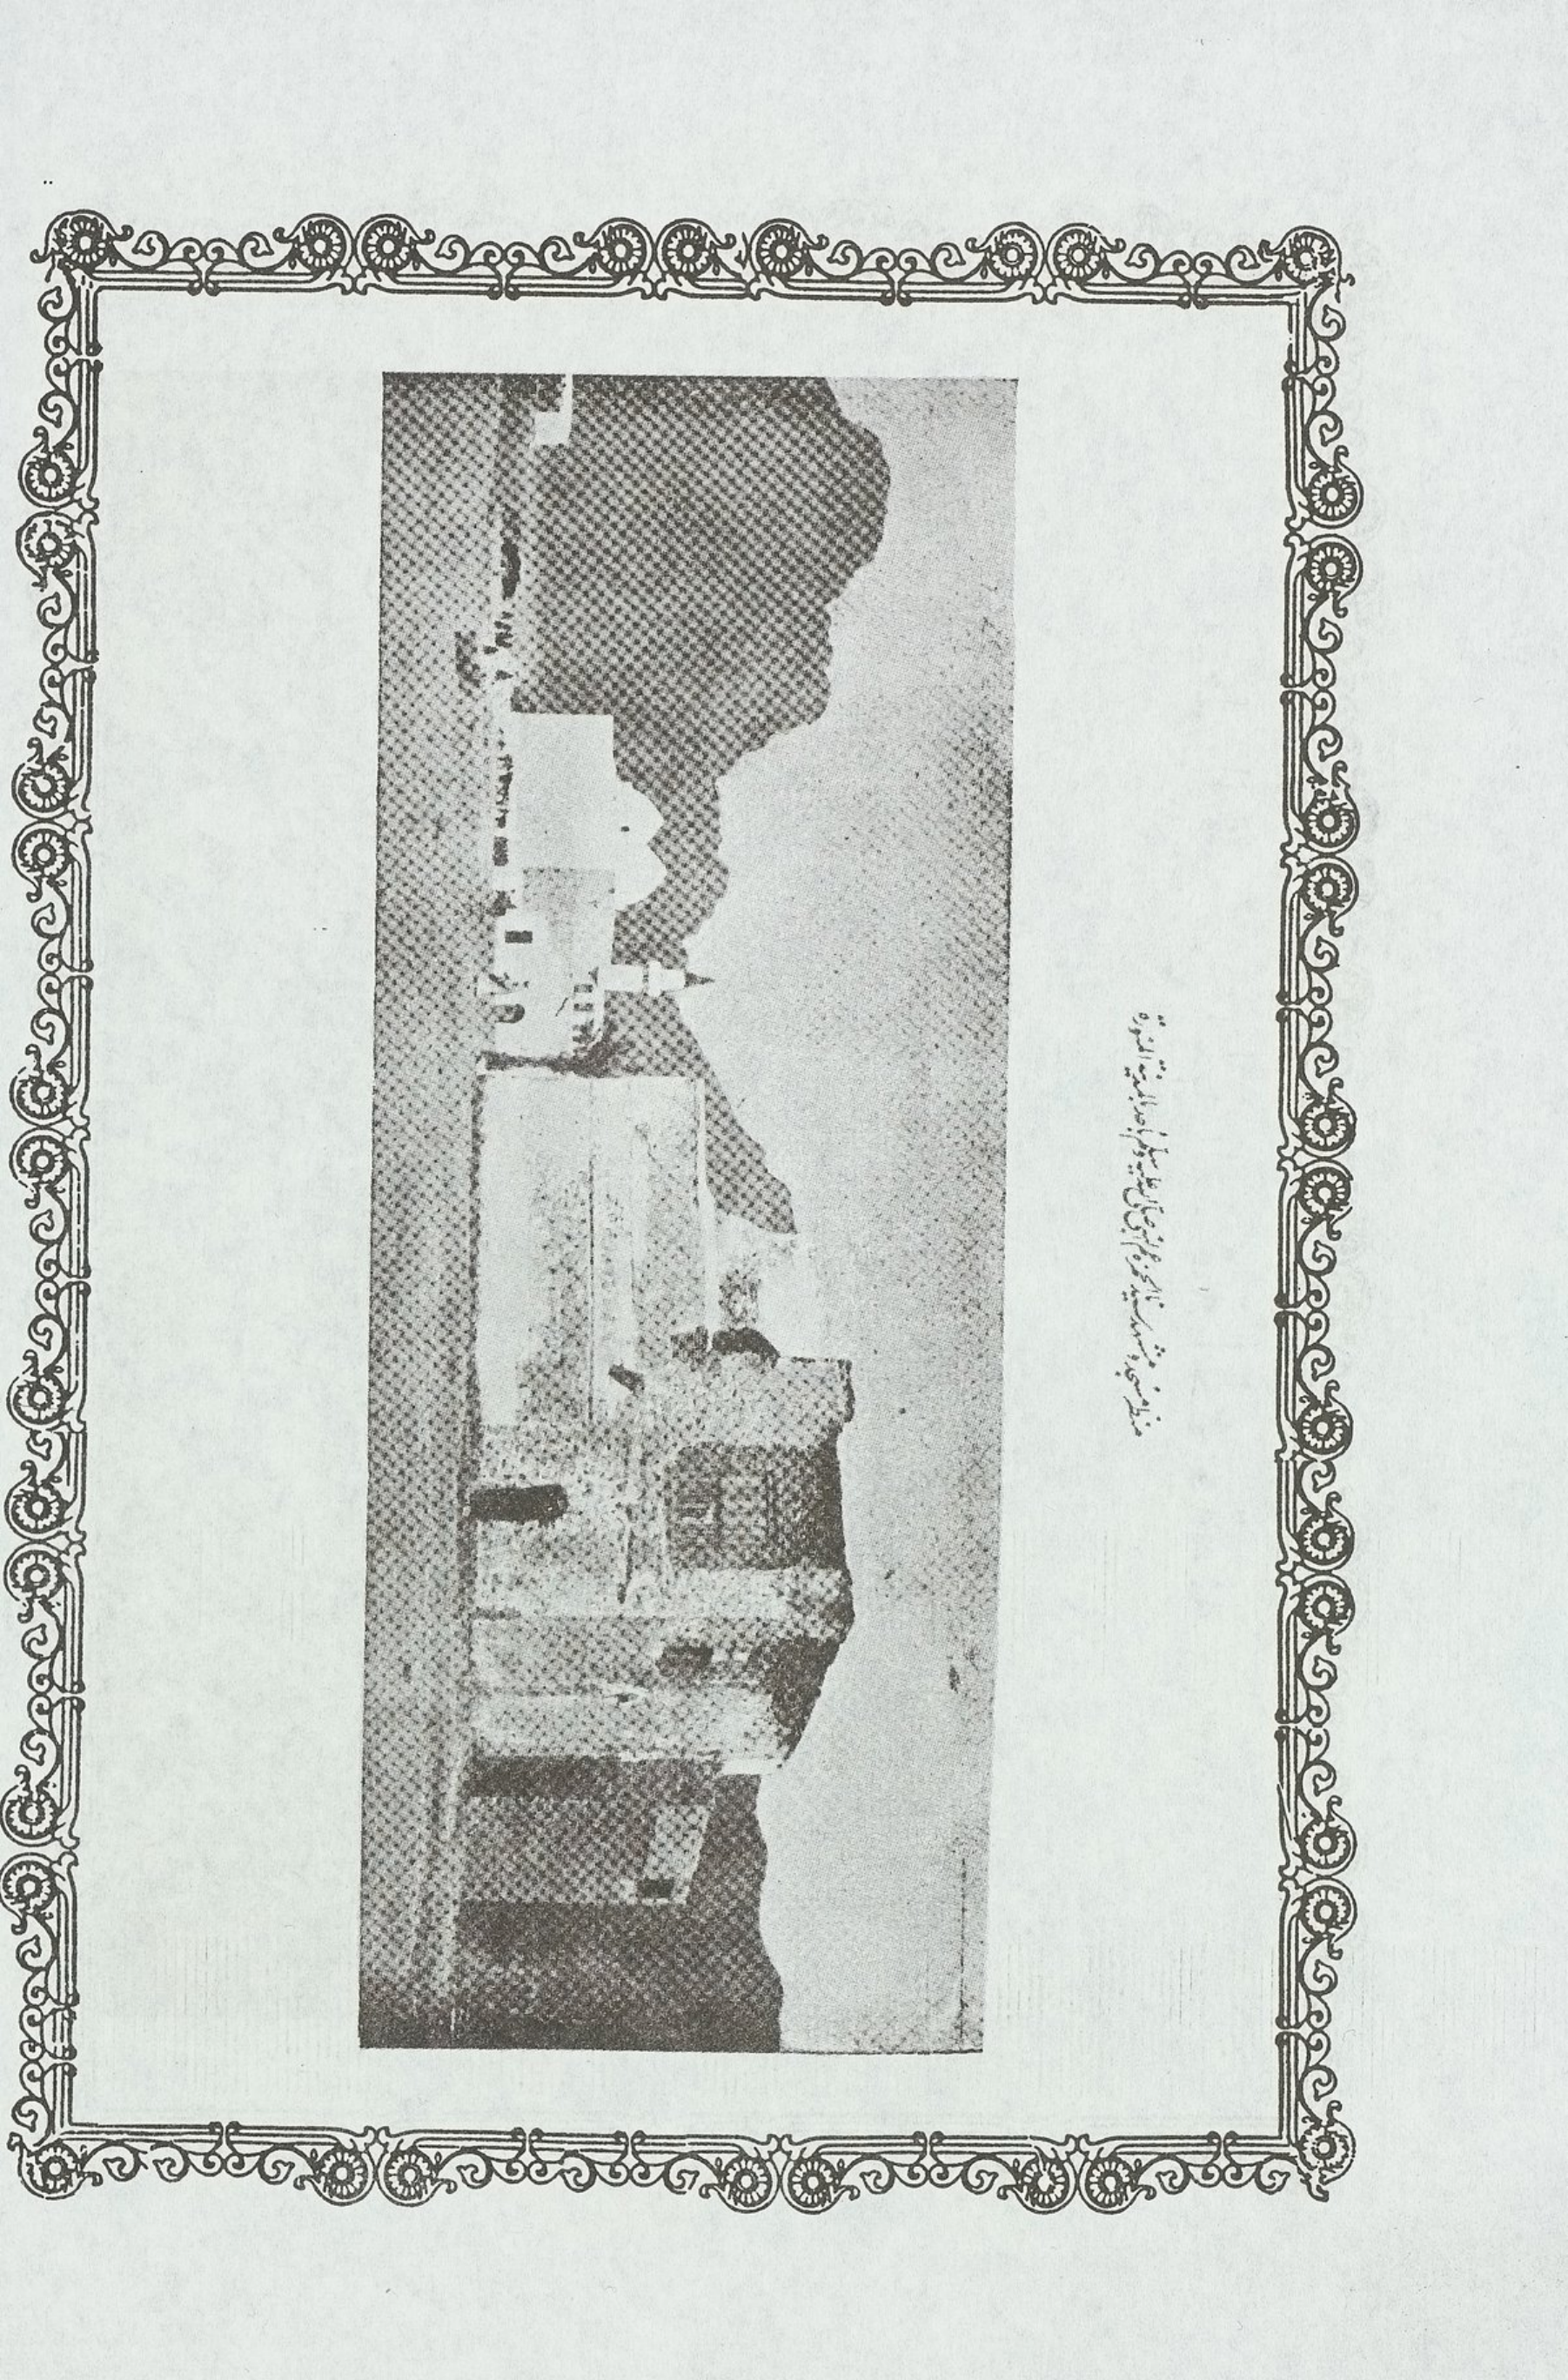 منظر مسجد ومشهد سيدنا حمزة عم النبي صلى الله عليه وسلم بأحد بالمدينة المنورة